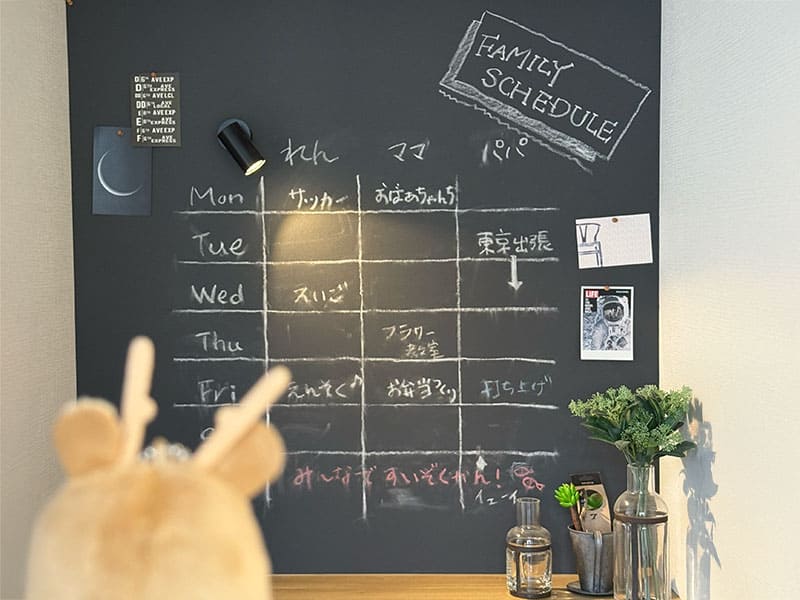 FAMILY
SCHEDULE
れん ママ パパ
Mon サッカー おばあちゃんち
Tue 東京出張
Wed えいご
Thu フラワー
教室
Fri えんそく♪ お弁当づくり 打ち上げ
みんなで すいぞくかん!
イェーイ
LIFE
AVE EXP
EXPRESS
AVE LCL
LOCAL
AVE EXP
AVE
EXPRESS
AVE EXP
AVE
EXPRESS